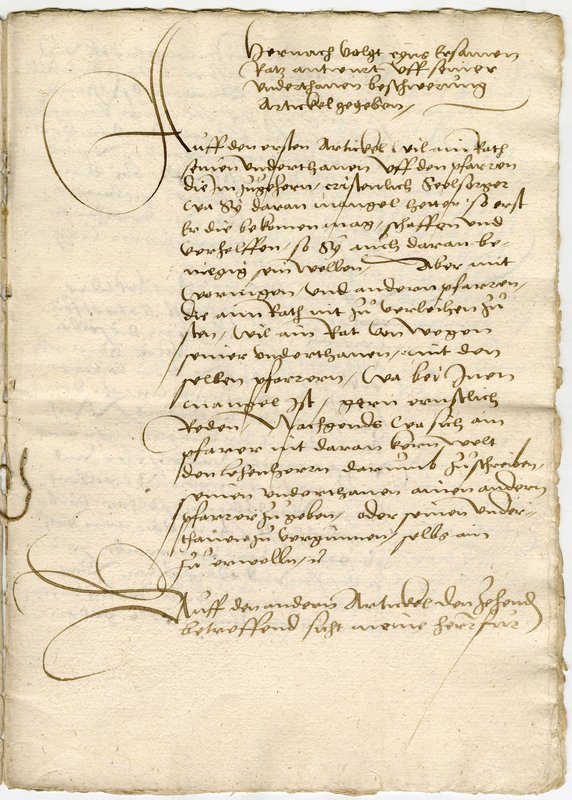 Hernach volgt eyns Ersamen
Ratz antwurt vff seiner
vnderthanen beschwerung
Artickel gegeben
Auff den ersten Artickel wil ain Rath
seinen vnderthanen vff den pfarren
die Im zugehern, cristenlich Seelsorger
wa Sy daran mangel hetten so erst
Er die bekomen mag, schaffen vnd
verhelffen, so Sy auch daran be-
niegig sein wellen, Aber mit
woringen, vnd andern pfarren,
die aim Rath nit zu verleihen zu
sten, wil ain Rat von wegen
seiner vnderthanen, mit den
selben pfarrern, wa bei Inen
mangel Ist, gern ernstlich
Reden, Nachgends wa sich ain
pfarrer nit daran kern welt
den lehenherrn darumb zuschreiben,
seinen vnderthanen ainen andern
pfarrer zu geben, oder seinen vnder-
thanen zu vergunnen, selbs ain
zu erwelln, &c
Auff den andern Artickel den zehend
betreffend sicht meine herrn fur